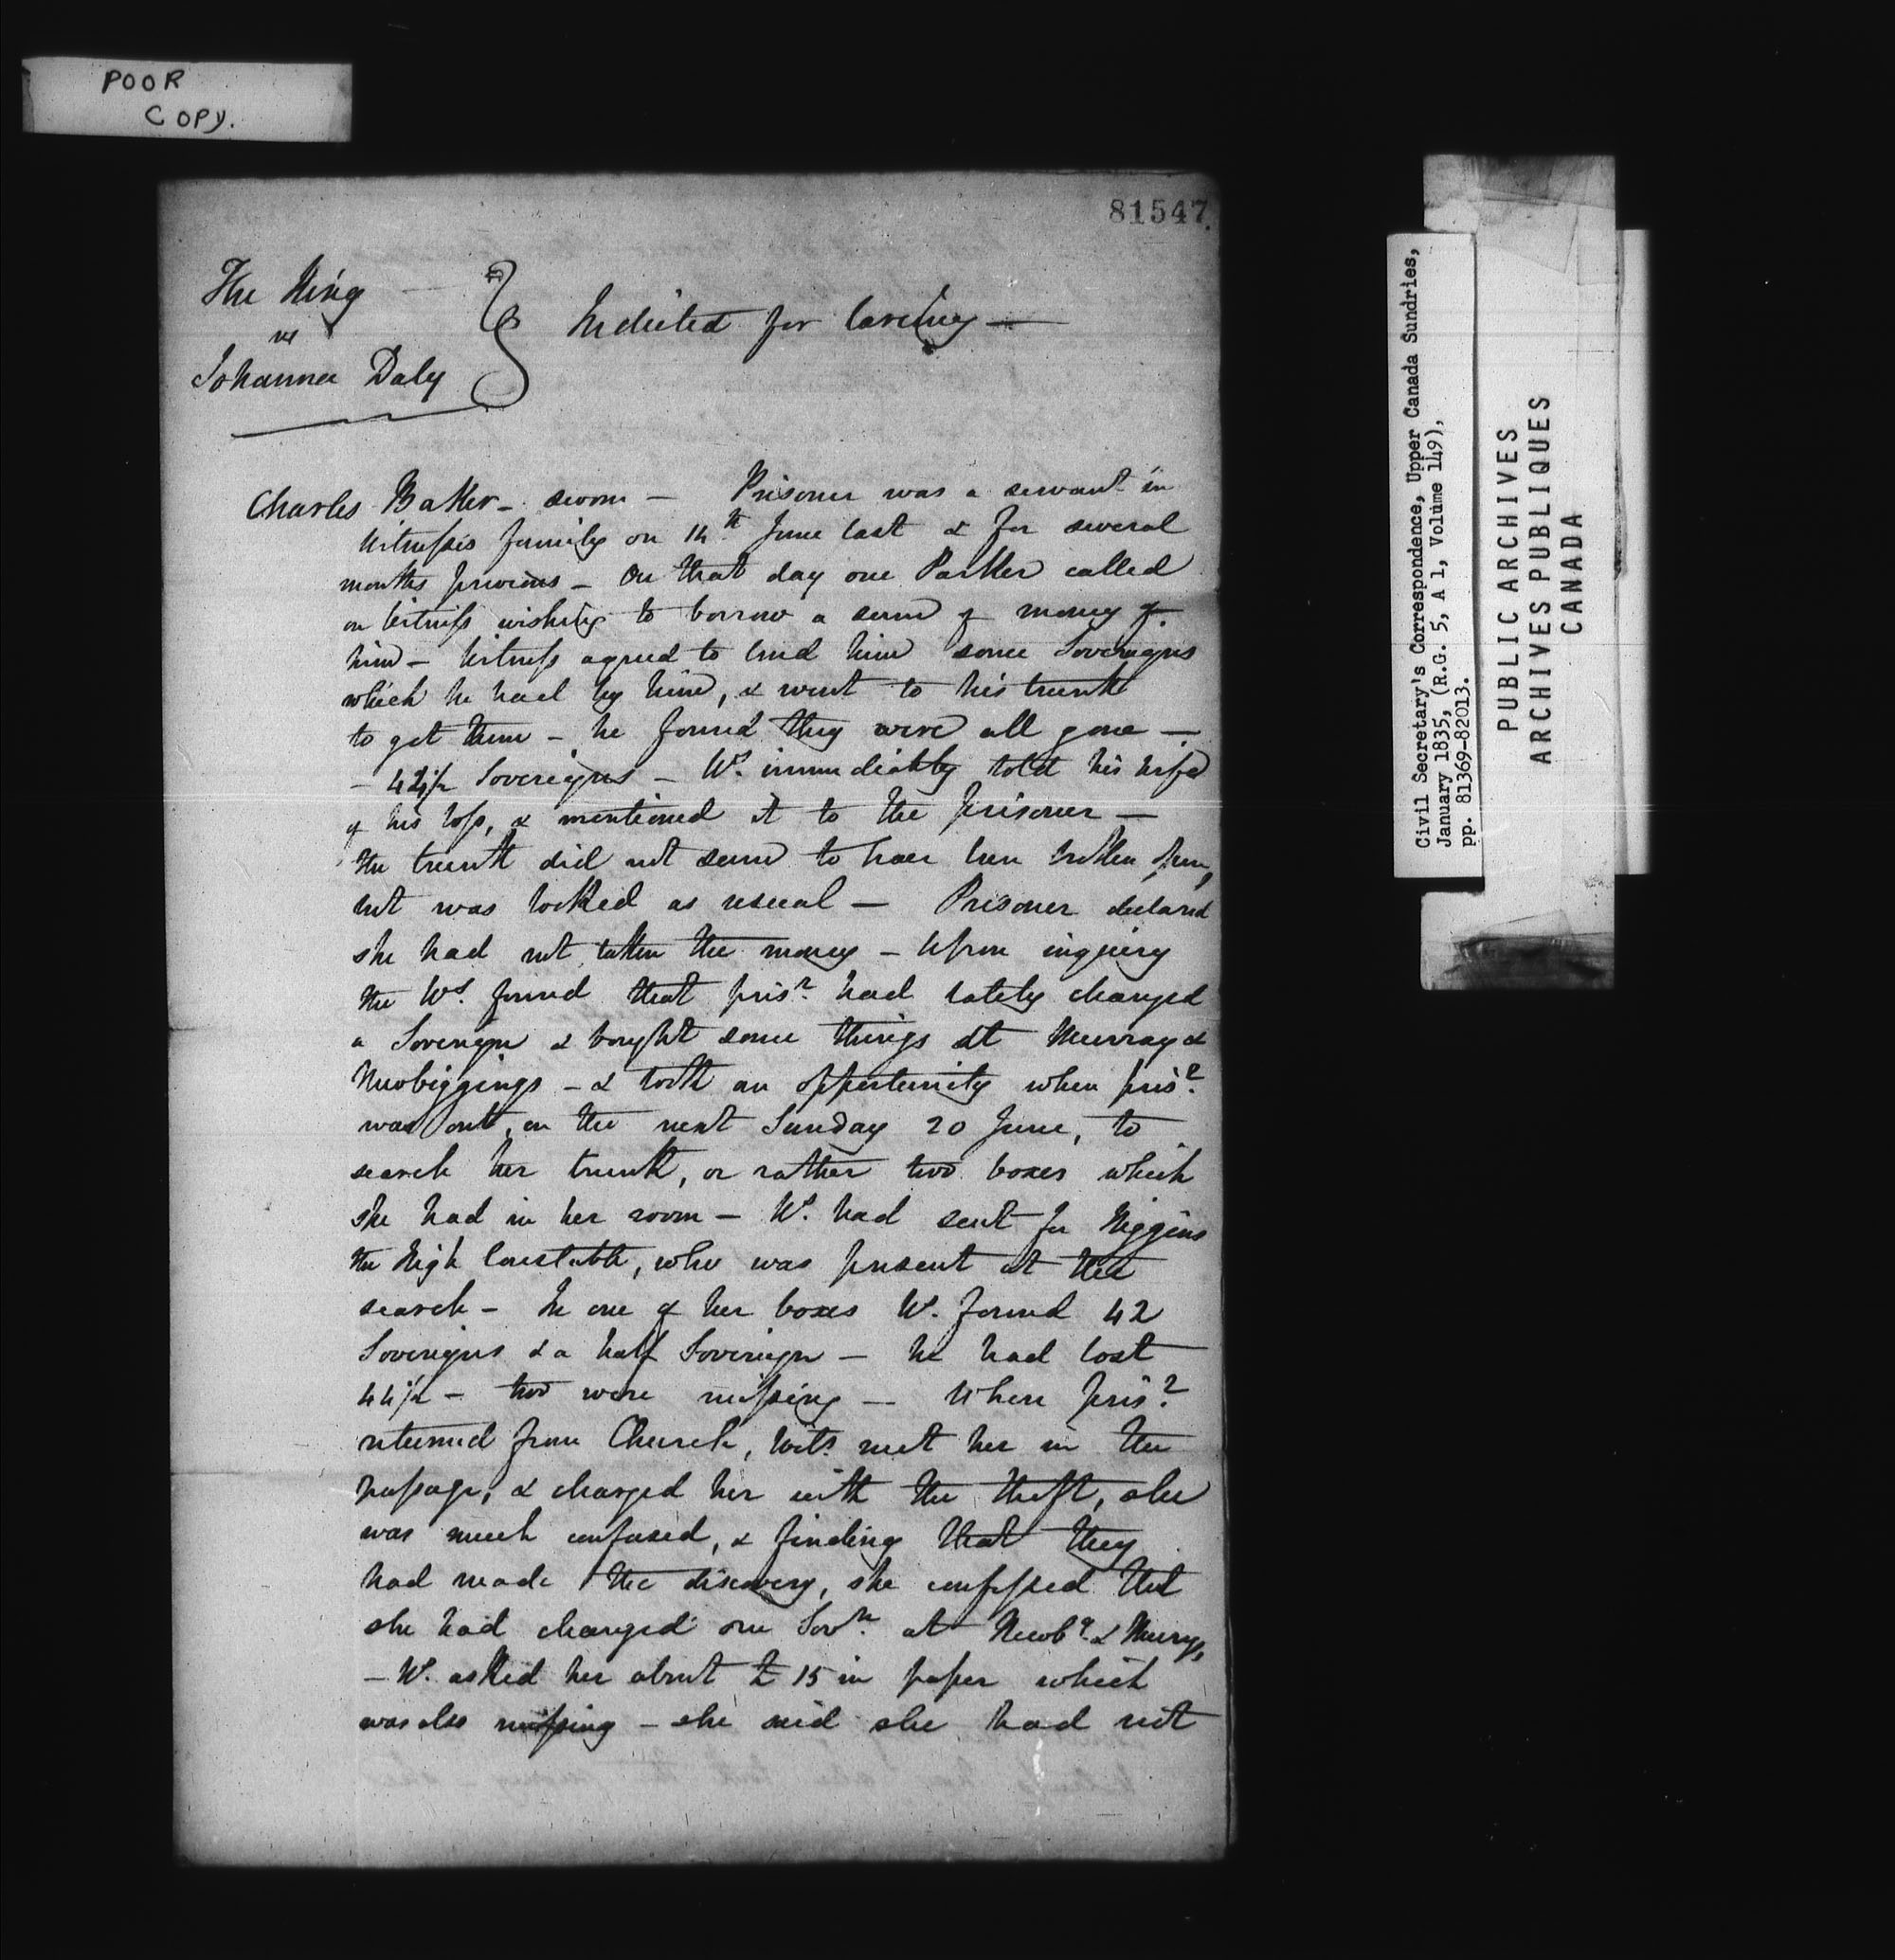 POOR
COPY.
81547
The King
vs
Johanna Daly
Indicted for Larceny —
Charles Baker - sworn — Prisoner was a servant in
Witness's family on 14th June last & for several
months previous - On that day one Parker called
on Witness wishing to borrow a sum of money of
him - Witness agreed to lend him some Sovereigns
which he had by him, & went to his trunk
to get them - he found they were all gone —
- 44½ Sovereigns - Ws. immediately told his wife
of his loss, & mentioned it to the prisoner —
the trunk did not seem to have been broken open,
but was locked as usual — Prisoner declared
she had not taken the money - Upon inquiry
the Ws. found that prisr. had lately changed
a Sovereign & bought some things at Murray &
Newbiggings - & took an opportunity when prisr.
was out, on the next Sunday 20 June, to
search her trunk, or rather two boxes which
she had in her room - Ws. had sent for Higgins
the High Constable, who was present at the
search - In one of her boxes Ws. found 42
Sovereigns & a half Sovereign - he had lost
44½ - two were missing — When prisr.
returned from Church, Wits. met her in the
passage, & charged her with the theft, she
was much confused, & finding that they
had made the discovery, she confessed that
she had changed one Sovn. at Newbg. & Murrys,
- Ws. asked her about £15 in paper which
was also missing - she said she had not
Civil Secretary's Correspondence, Upper Canada Sundries,
January 1835, (R.G. 5, A 1, Volume 149),
pp. 81369-82013.
PUBLIC ARCHIVES
ARCHIVES PUBLIQUES
CANADA